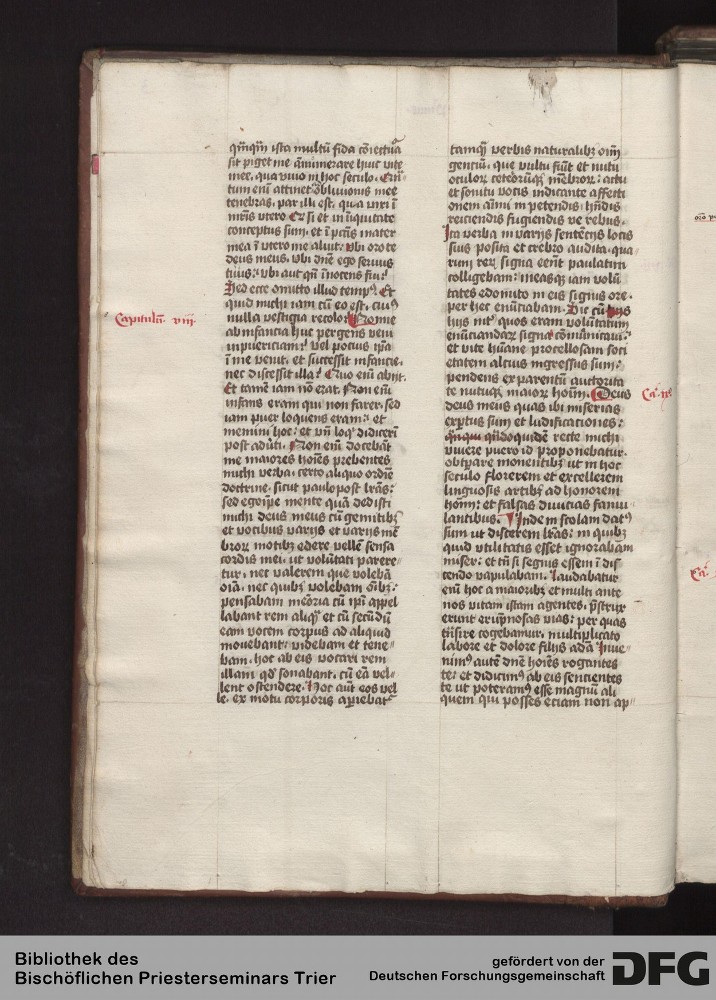 qm̄qm̄ ista multū fida cōiectur̄a
sit piget me ānumerare huic vite
mee, qua viuo in hoc seculo. Quā
tum enī attinet oblivionis mee
tenebras, par illi est, quā vixi ī
mr̄is vtero Et si et in iniquitate
conceptus sum, et ī pctīs mater
mea ī vtero me aluit: vbi oro te
deus meus, vbi dn̄e ego seruus
tuus: vbi aut qn̄ īnocens fui?
Sed ecce omitto illud tempꝰ. Et
quid michi iam cū eo est, cuiꝰ
nulla vestigia recolo? Nonne
Capitulū viij.
ab infancia huc pergens veni
in puericiam? vel pocius ip̄a
ī me venit, et successit infancie.
nec discessit illa? Quo enī abijt.
Et tamē iam nō erat. Non enī
infans eram qui non farer. sed
iam puer loquens eram: et
memini hoc: et vn̄ loqi didicerī
post adūti. Non enī docebāt
me maiores hoīes prebentes
michi verba. certo aliquo ordīe
doctrine. sicut paulo post lr̄as:
sed ego ip̄e mente quā dedisti
michi deus meus cū gemitibꝫ
et vocibus varijs et varijs mē
broꝝ motibꝫ edere vellē sensa
cordis mei, ut volūtati parere
tur, nec valerem que volebā
oīa, nec quibꝫ volebam oībꝫ:
pensabam meōria cū ip̄i appel
labant rem aliqᷓ et cū secūdū
eam vocem corpus ad aliquid
mouebant: videbam et tene
bam. hoc ab eis vocari rem
illam qd̄ sonabant. cū eā vel
lent ostendere. Hoc aūt eos vel
le. ex motu corporis aperiebat
tamqᷓ verbis naturalibꝫ oīm̄
gentiū, que vultu fiūt et nutu
oculoꝝ ceteroruqꝫ mēbroꝝ: actu
et sonitu vocis indicante affecti
onem aīmi in petendis, hn̄dis
reiciendis fugiendis ve rebus.
Ita verba in varijs sentēcijs locis
suis posita et crebro audita. qua
rum reꝝ signa eēnt paulatim
colligebam: measqꝫ iam volū
tates edomito in eis signis ore.
per hec enūciabam. Sic cū hijs
hijs int̾ quos eram volūtatum
enūciandaꝝ signa cōmūnicaui:
et vite hūane procellosam soci
etatem altius ingressus sum:
pendens ex parentū auctorita
te nutuqꝫ maioꝝ hoīm. Deus
Ca. ix.
deus meus quas ibi miserias
expertus sum et ludificaciones:
qn̄qui qn̄doquidē recte michi
viuere puero id proponebatur.
obtp̄are monentibꝫ ut in hoc
seculo florerem et excellerem
linguosis artibꝫ ad honorem
hoīm: et falsas diuicias famu
lantibus. Inde in scolam datꝰ
sum ut discerem lr̄as: in quibꝫ
quid vtilitatis esset ignorabam
miser: et tn̄ si segnis essem ī dis
cendo vapulabam. laudabatur
enī hoc a maioribꝫ et multi ante
nos vitam istam agentes. p̄strux
erunt erūpnosas vias: per quas
trāsire cogebamur. multiplicato
labore et dolore filijs adā Inue
nimꝰ autē dn̄e hoīes rogantes
te: et didicimꝰ ab eis sencientes
te ut poteramꝰ esse magnū ali
quem qui posses eciam non ap
Bibliothek des
Bischöflichen Priesterseminars Trier
gefördert von der
Deutschen Forschungsgemeinschaft
DFG